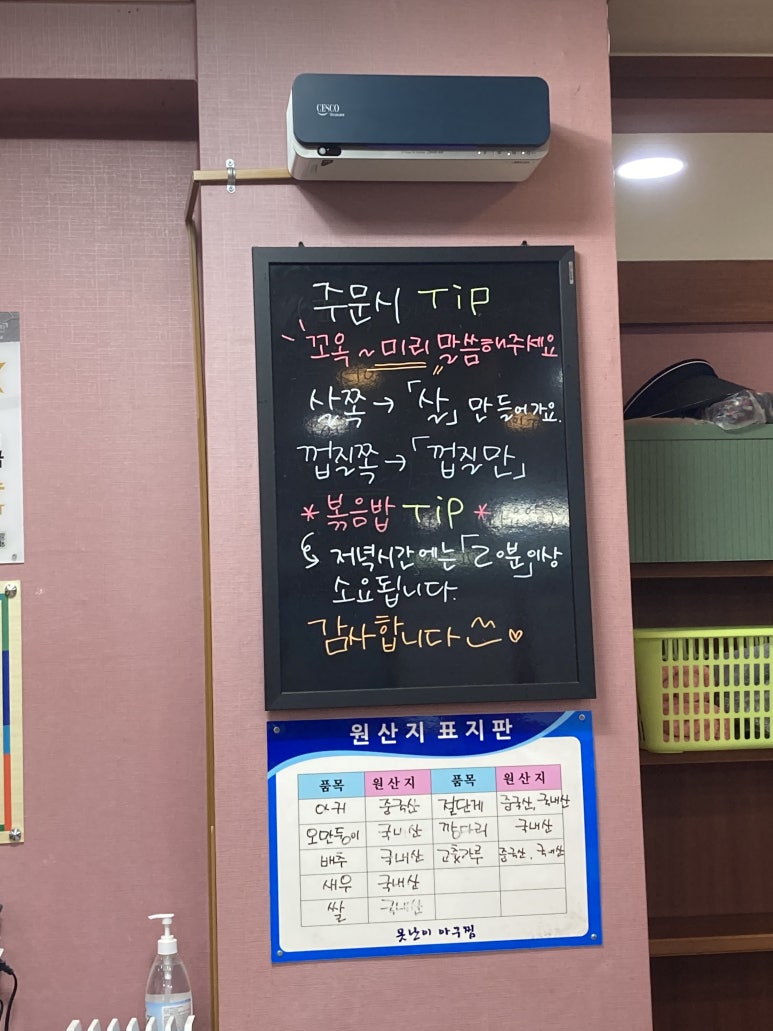 CESCO
주문시 TIP
꼬옥~미리 말씀해주세요
살쪽→「살」만 들어가요.
껍질쪽→「껍질만」
*볶음밥 TIP*
저녁시간에는「20분」이상
소요됩니다.
감사합니다
원산지 표지판
품목 원산지 품목 원산지
아귀 중국산 절단게 중국산, 국내산
오만둥이 국내산 깡다리 국내산
배추 국내산 고춧가루 중국산, 국내산
새우 국내산
쌀 국내산
못난이 아구찜